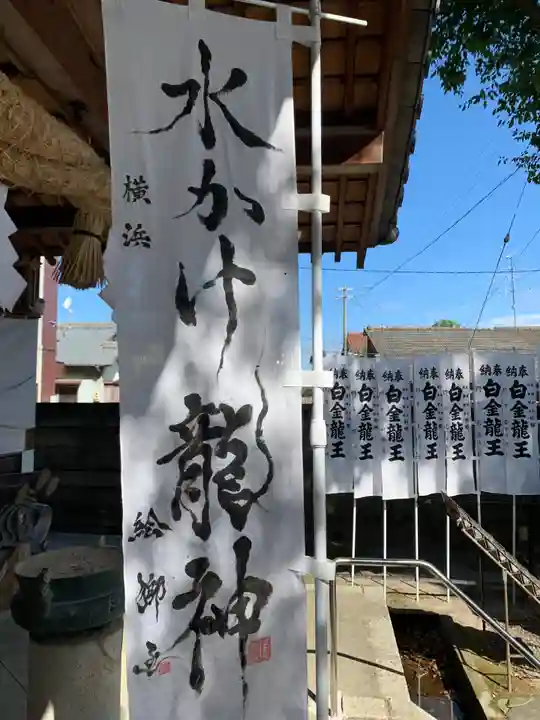 水かけ龍神
横浜
奉納
白金龍王
奉納
白金龍王
奉納
白金龍王
奉納
白金龍王
奉納
白金龍王
奉納
白金龍王
奉納
白金龍王